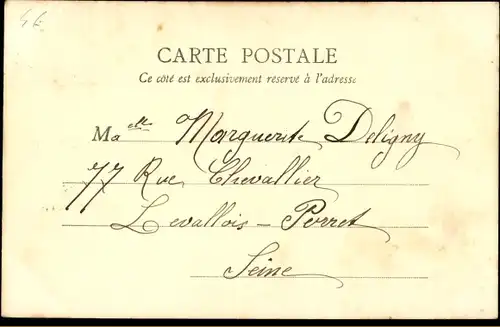 4E
CARTE POSTALE
Ce côté est exclusivement réservé à l'adresse
Melle Marguerite Deligny
77 Rue Chevallier
Levallois-Perret
Seine